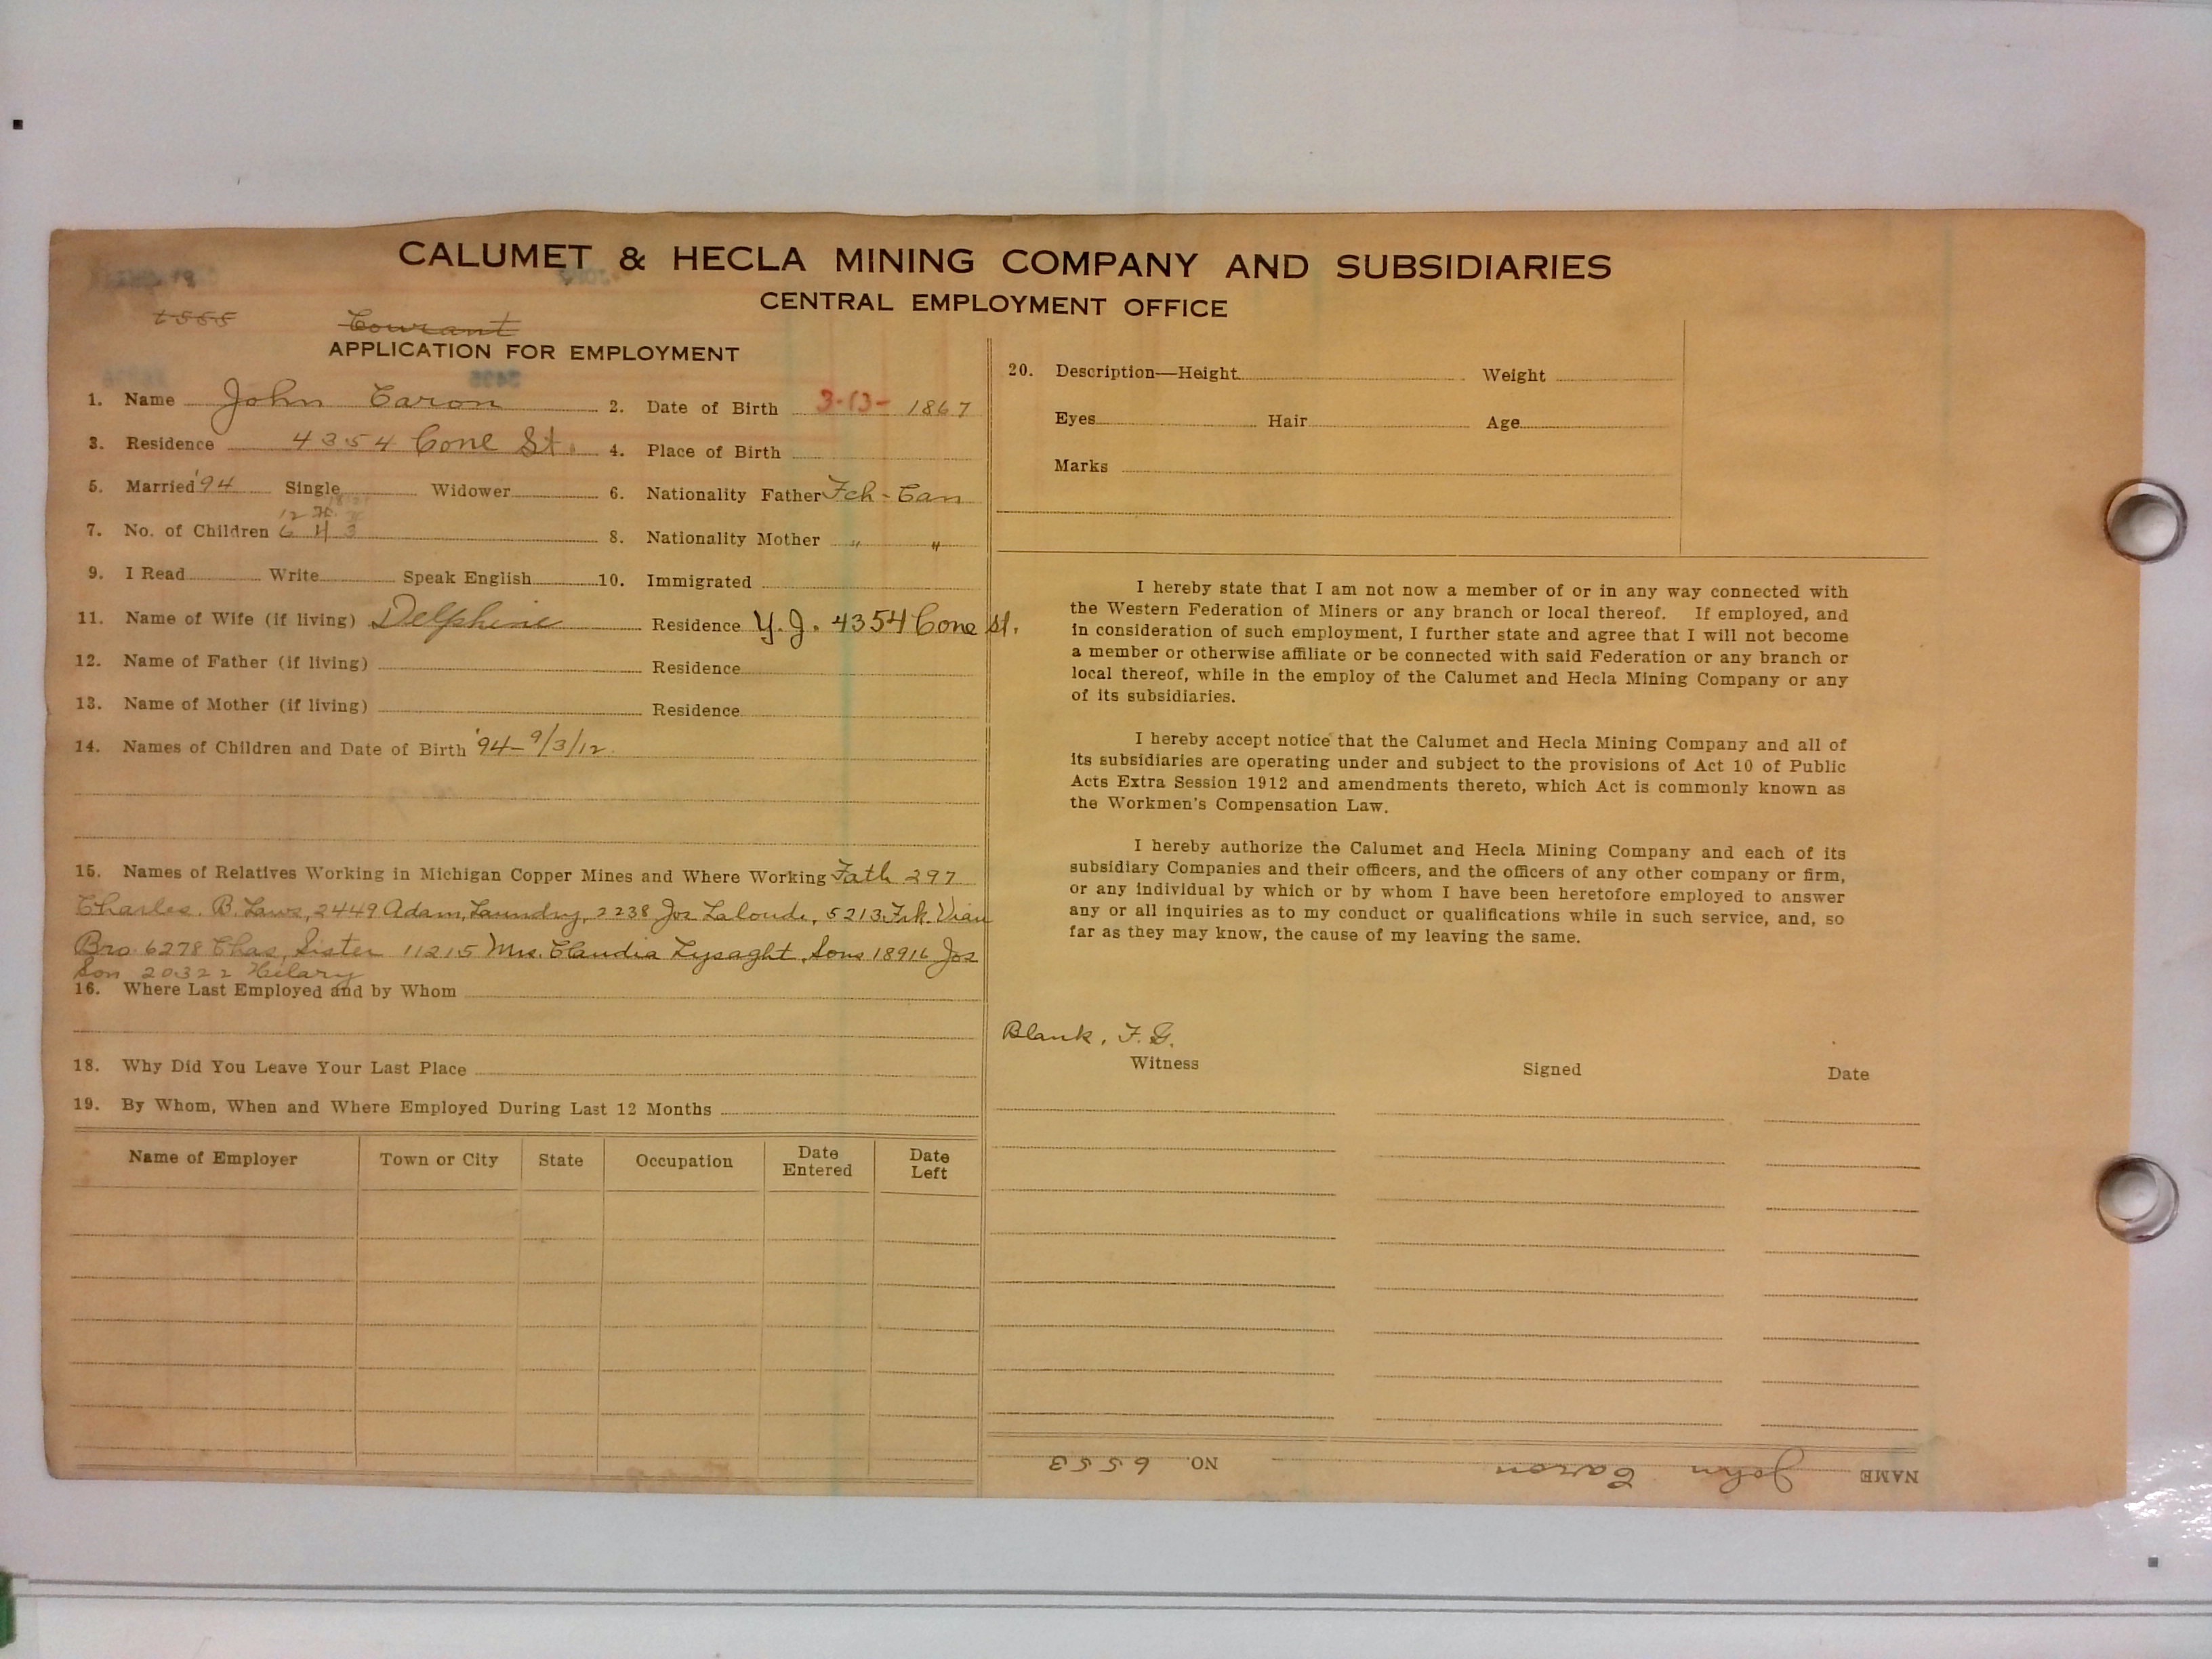 CALUMET & HECLA MINING COMPANY AND SUBSIDIARIES
CENTRAL EMPLOYMENT OFFICE
Courant
APPLICATION FOR EMPLOYMENT
1. Name John Caron 2. Date of Birth 3-13- 1867
3. Residence 4354 Cone St. 4. Place of Birth
5. Married '94 Single Widower 6. Nationality Father Fch-Can
7. No. of Children 6 4 3 8. Nationality Mother " "
9. I Read Write Speak English 10. Immigrated
11. Name of Wife (if living) Delphine Residence Y.J. 4354 Cone St.
12. Name of Father (if living) Residence
13. Name of Mother (if living) Residence
14. Names of Children and Date of Birth '94-9/3/12.
15. Names of Relatives Working in Michigan Copper Mines and Where Working Fath 297
Charles. B. Laws, 2449 Adam, Laundry, 2238 Jos Lalonde, 5213 Frk. Vian
Bro. 6278 Chas, Sister 11215 Mrs. Claudia Lysaght, Sons 18916 Jos
Son 20322 Hilary
16. Where Last Employed and by Whom
18. Why Did You Leave Your Last Place
19. By Whom, When and Where Employed During Last 12 Months
Name of Employer Town or City State Occupation Date Entered Date Left
20. Description—Height Weight
Eyes Hair Age
Marks
I hereby state that I am not now a member of or in any way connected with
the Western Federation of Miners or any branch or local thereof. If employed, and
in consideration of such employment, I further state and agree that I will not become
a member or otherwise affiliate or be connected with said Federation or any branch or
local thereof, while in the employ of the Calumet and Hecla Mining Company or any
of its subsidiaries.
I hereby accept notice that the Calumet and Hecla Mining Company and all of
its subsidiaries are operating under and subject to the provisions of Act 10 of Public
Acts Extra Session 1912 and amendments thereto, which Act is commonly known as
the Workmen's Compensation Law.
I hereby authorize the Calumet and Hecla Mining Company and each of its
subsidiary Companies and their officers, and the officers of any other company or firm,
or any individual by which or by whom I have been heretofore employed to answer
any or all inquiries as to my conduct or qualifications while in such service, and, so
far as they may know, the cause of my leaving the same.
Blank, F. G.
Witness Signed Date
NAME John Caron NO. 6553